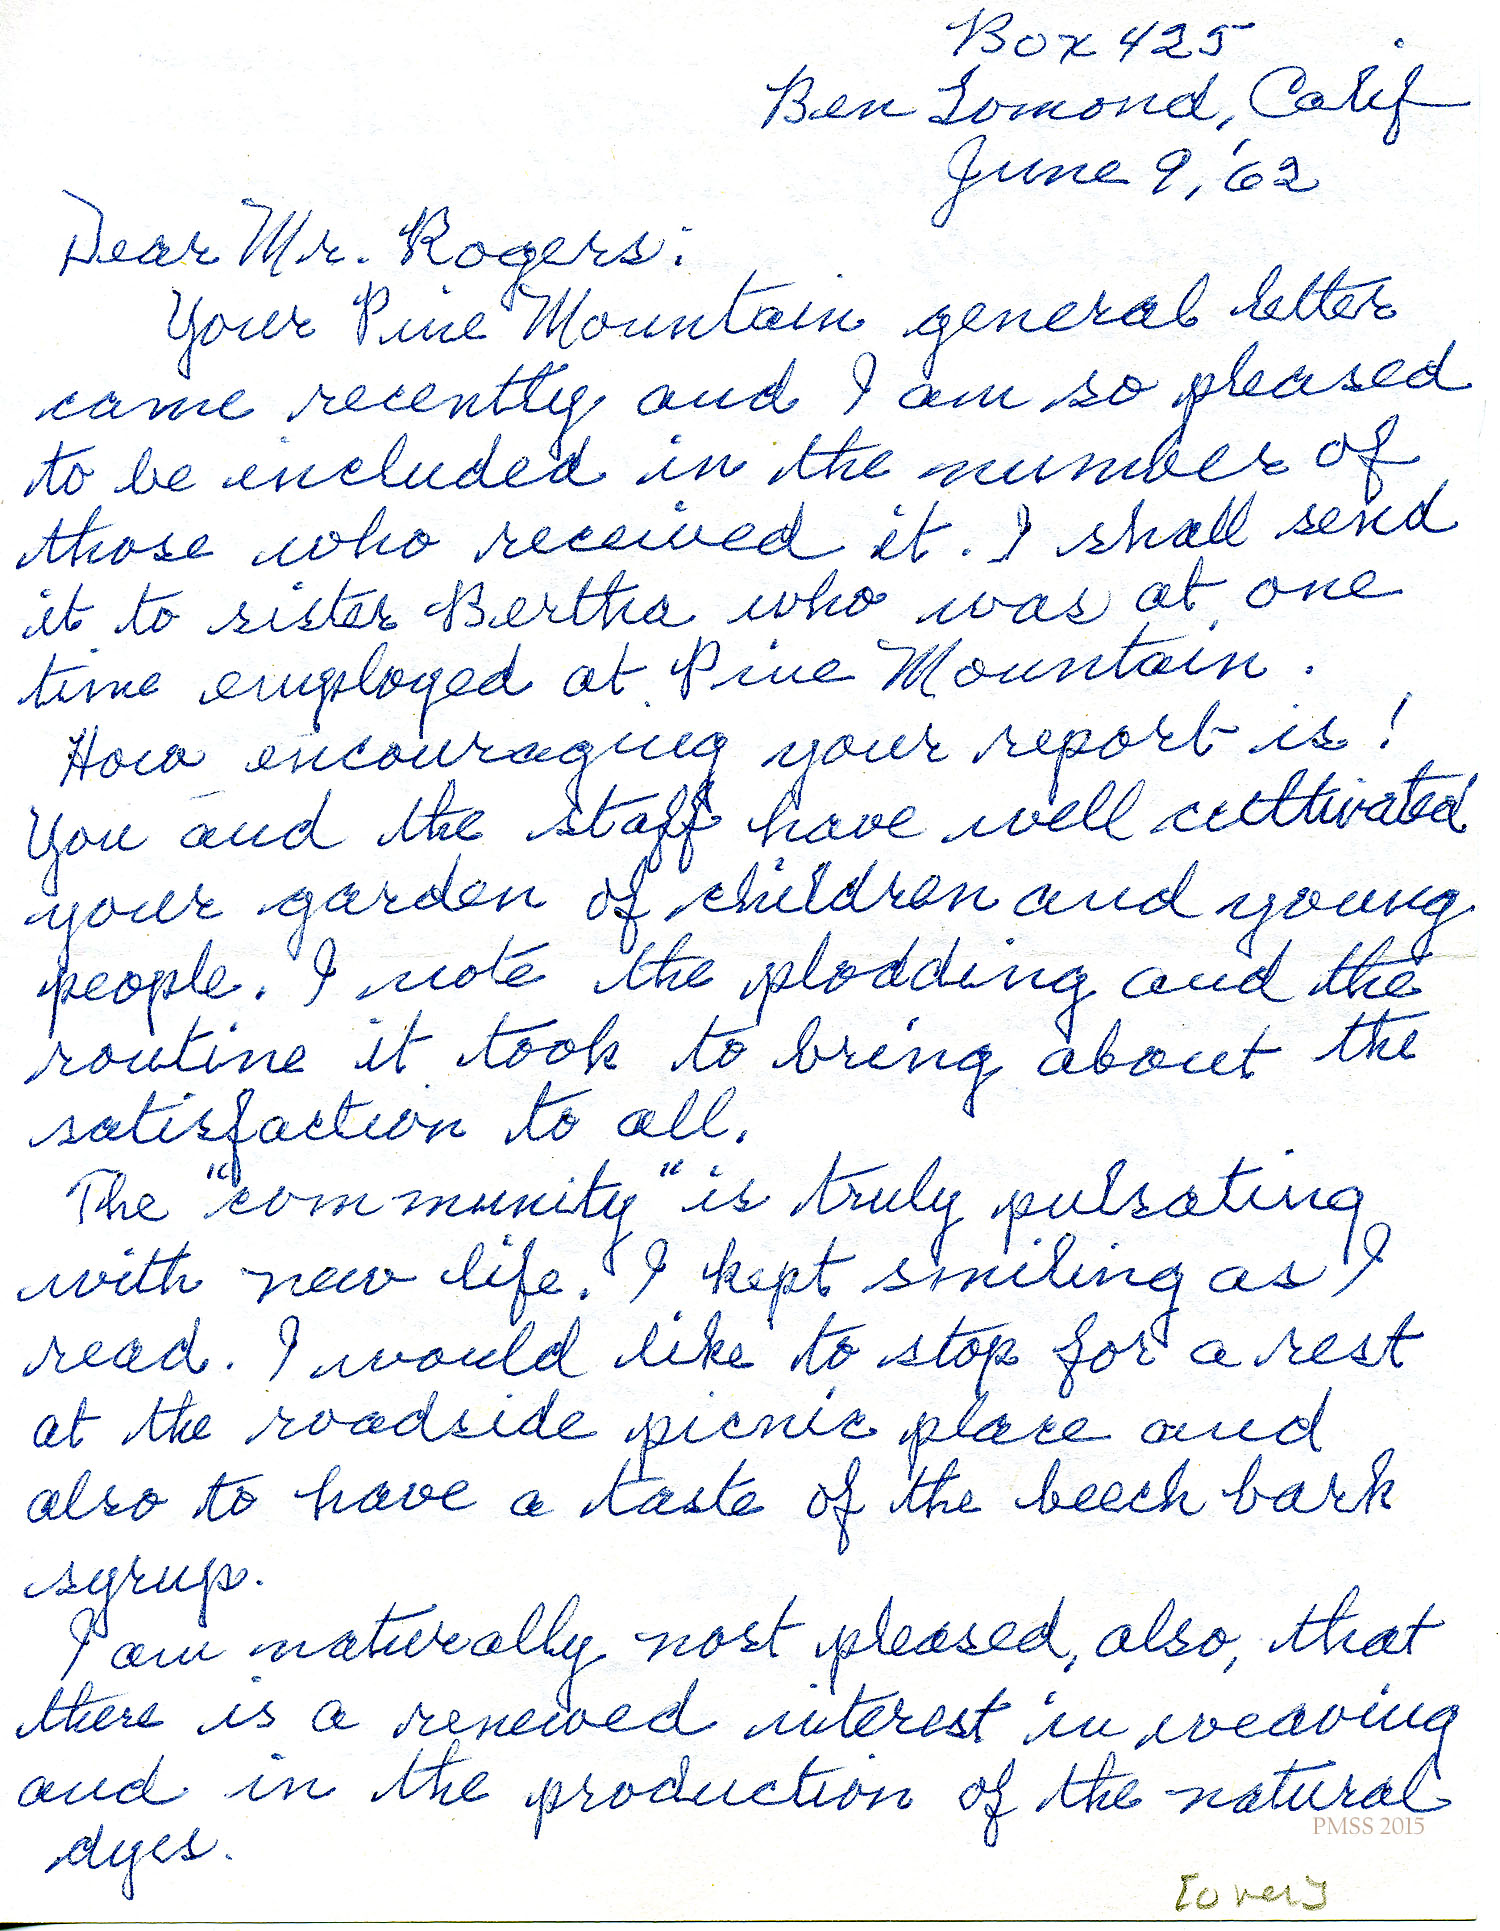 Box 425
Ben Lomond, Calif
June 9, '62
Dear Mr. Rogers:
Your Pine Mountain general letter
came recently and I am so pleased
to be included in the number of
those who received it. I shall send
it to sister Bertha who was at one
time employed at Pine Mountain.
How encouraging your report is!
You and the staff have well cultivated
your garden of children and young
people. I note the plodding and the
routine it took to bring about the
satisfaction to all.
The "community" is truly pulsating
with new life. I kept smiling as I
read. I would like to stop for a rest
at the roadside picnic place and
also to have a taste of the beech bark
syrup.
I am naturally most pleased, also, that
there is a renewed interest in weaving
and in the production of the natural
dyes.
PMSS 2015
[over]